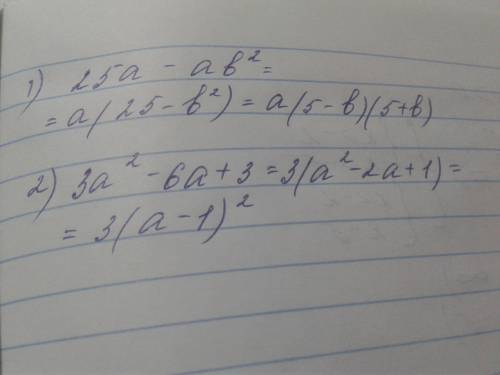 1) 25a - ab² =
= a(25 - b²) = a(5 - b)(5+b)
2) 3a² - 6a + 3 = 3(a² - 2a + 1) =
= 3(a - 1)²